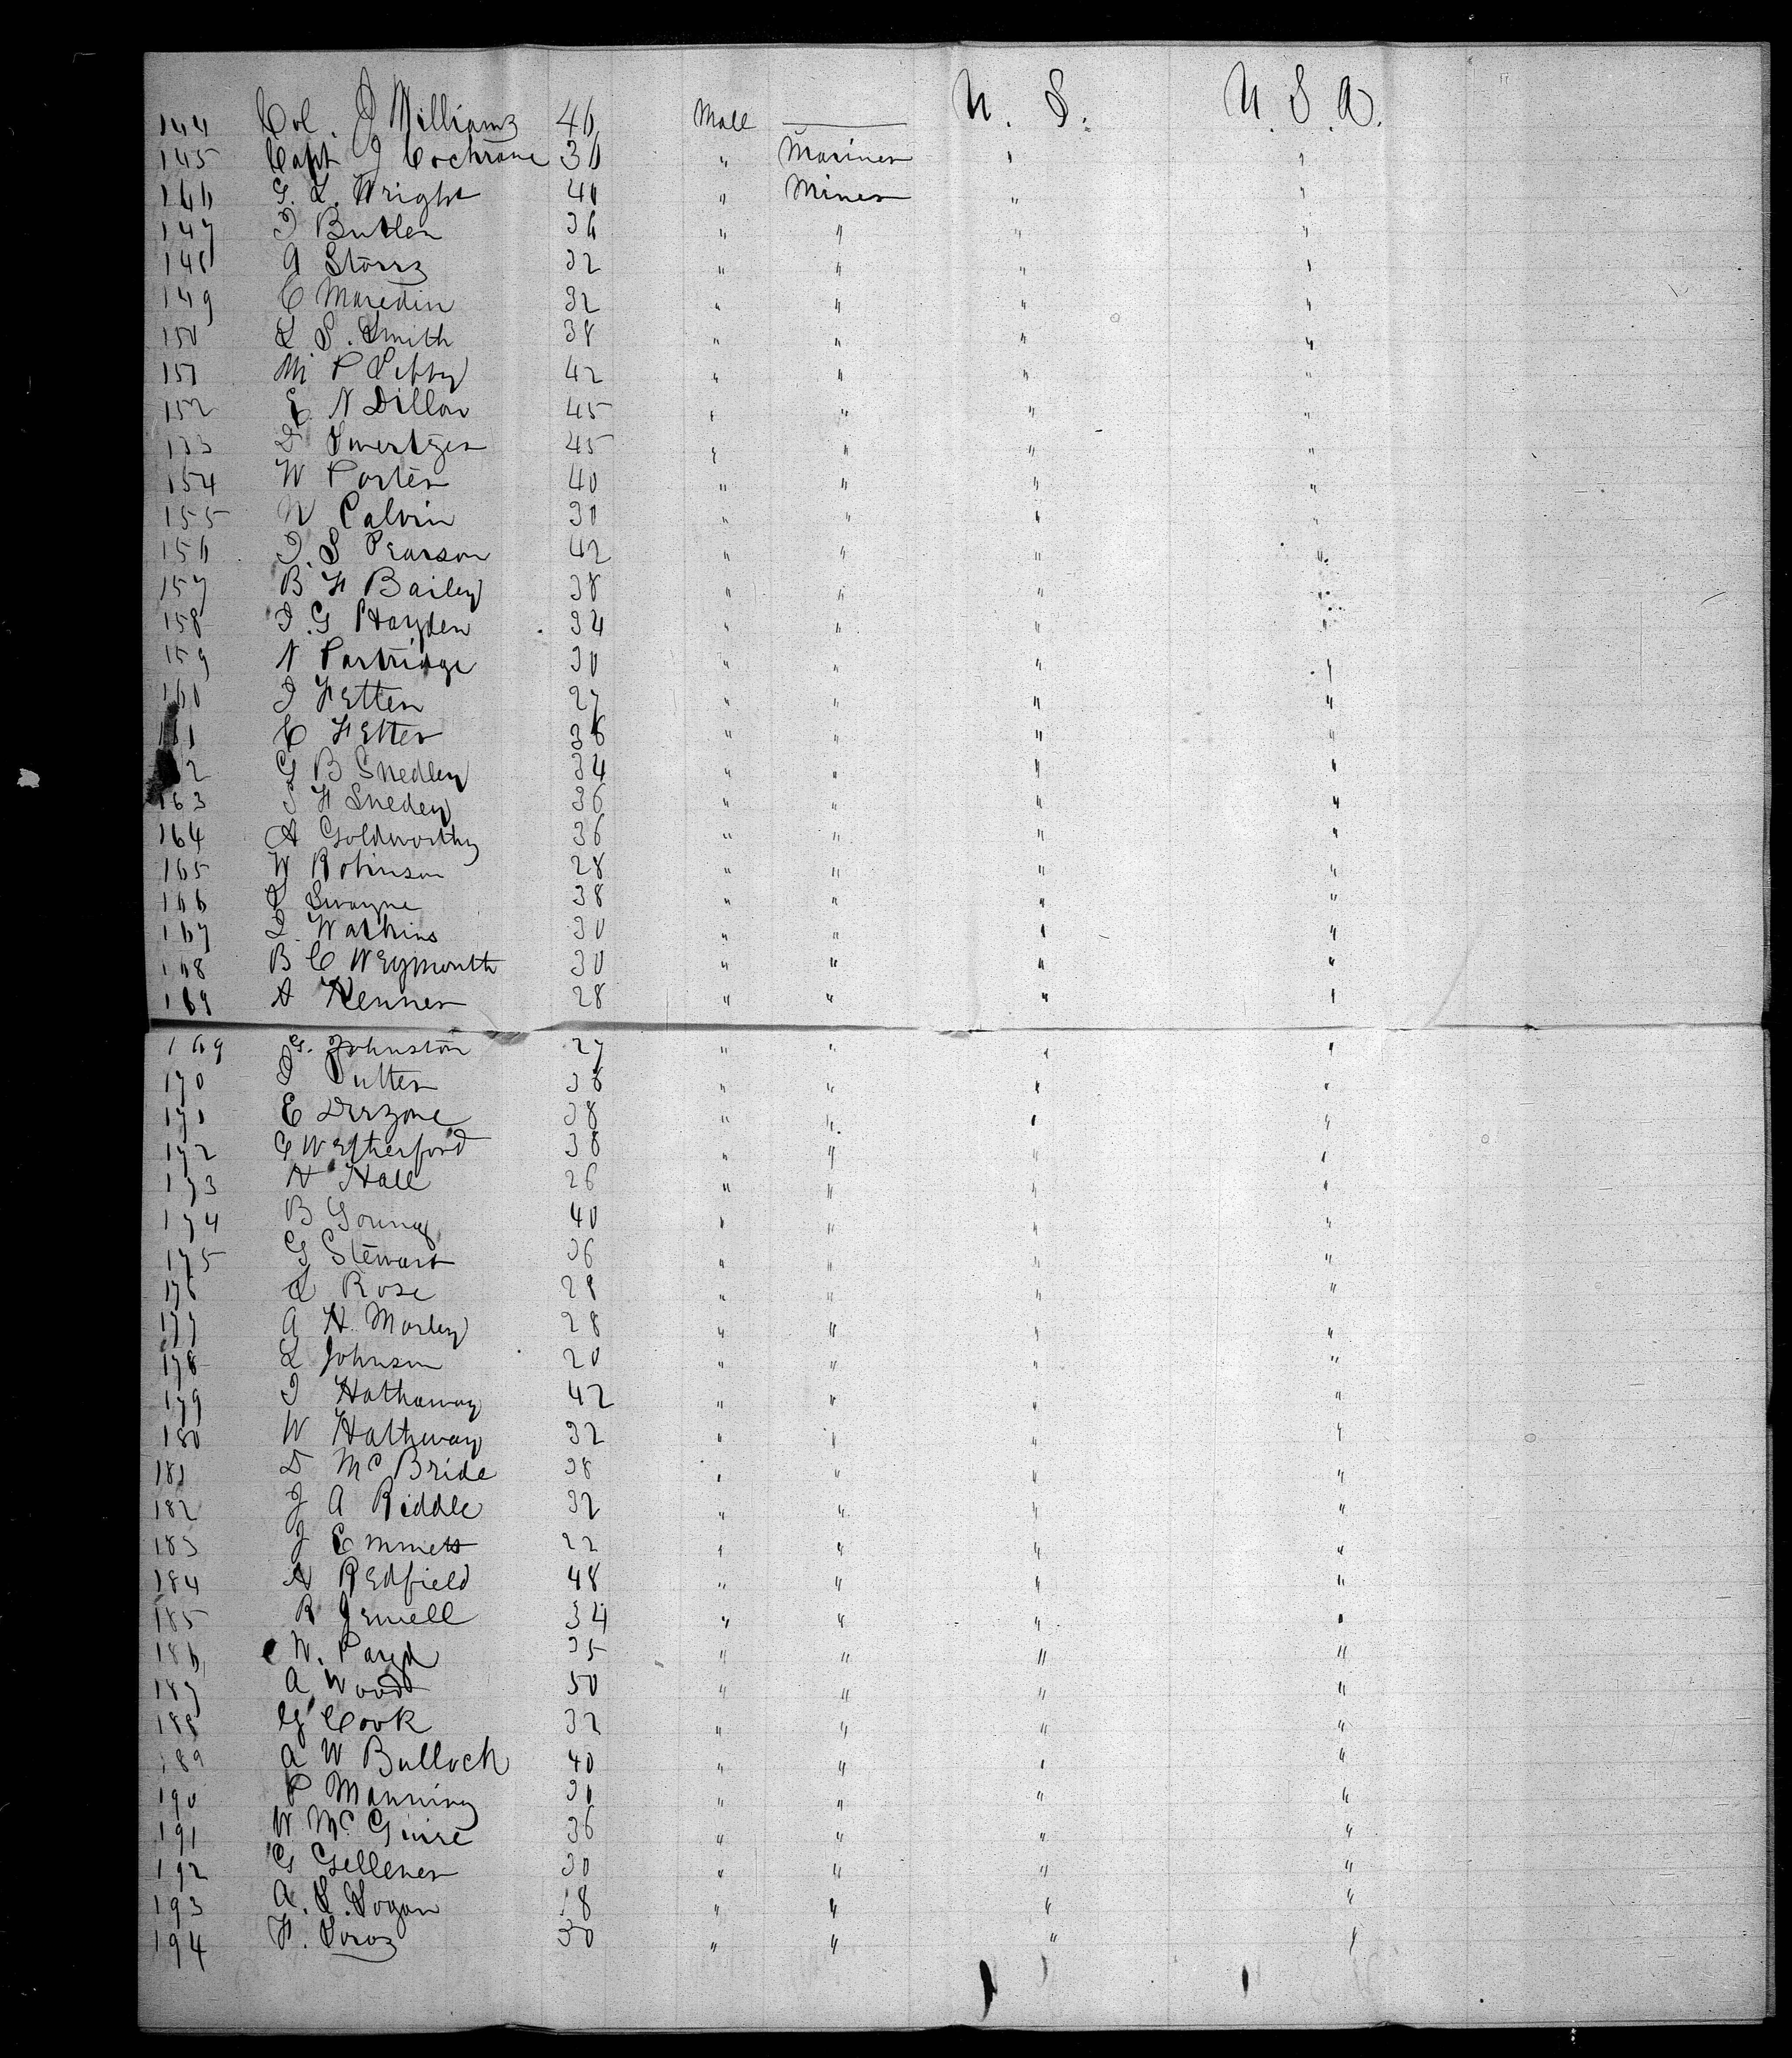 144 Col. J Williams 40 Male —— U. S. U. S. A.
145 Capt J Cochrane 30 " Mariner " "
146 G. L. Wright 40 " Miner " "
147 J Butler 36 " " " "
148 A Storrs 32 " " " "
149 C Maredin 32 " " " "
150 L S. Smith 38 " " " "
151 M. P Libby 42 " " " "
152 E N Dillon 45 " " " "
153 D Swertzer 45 " " " "
154 W Porter 40 " " " "
155 W Calvin 30 " " " "
156 J. S Pearson 42 " " " "
157 B F Bailey 38 " " " "
158 J. G Hayden 34 " " " "
159 N Partridge 30 " " " "
160 J Fetter 27 " " " "
161 C Fetter 36 " " " "
162 G B Snedley 34 " " " "
163 J F Snedey 36 " " " "
164 A Goldworthy 36 " " " "
165 W Robinson 28 " " " "
166 L Swayne 38 " " " "
167 J. Watkins 30 " " " "
168 B C Weymouth 30 " " " "
169 A Kenner 28 " " " "
169 G. Johnston 27 " " " "
170 J Sutter 38 " " " "
171 E Derzone 38 " " " "
172 C Wetherford 38 " " " "
173 H Hall 26 " " " "
174 B Young 40 " " " "
175 G Stewart 36 " " " "
176 L Rose 28 " " " "
177 A H Morley 28 " " " "
178 L Johnson 20 " " " "
179 J Hathaway 42 " " " "
180 W Hatheway 32 " " " "
181 D McBride 38 " " " "
182 J A Riddle 32 " " " "
183 J Emmett 22 " " " "
184 A Redfield 48 " " " "
185 R Jewell 34 " " " "
186 W. 35 " " " "
187 A Wood 50 " " " "
188 G Cook 32 " " " "
189 A W Bulloch 40 " " " "
190 P Manning 30 " " " "
191 W McGuire 36 " " " "
192 G Gellener 30 " " " "
193 A. L. Logan 18 " " " "
194 F. 30 " " " "